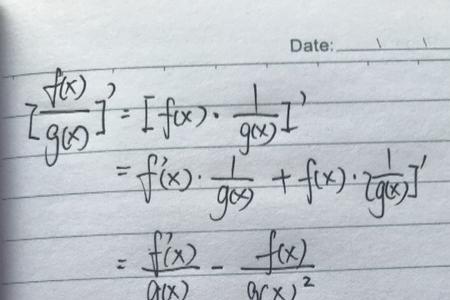 Date:
[f(x)/g(x)]' = [f(x)·1/g(x)]'
= f'(x)·1/g(x) + f(x)·[1/g(x)]'
= f'(x)/g(x) - f(x)/g(x)²